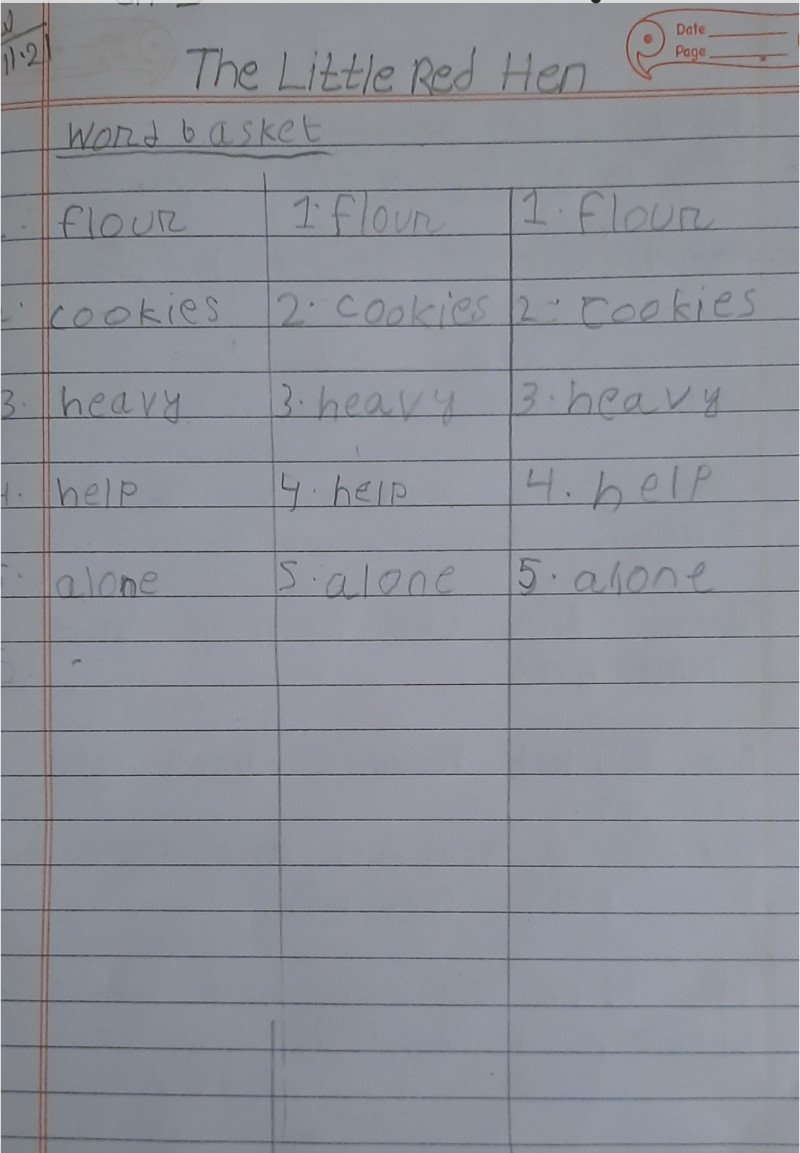 11.21
The Little Red Hen
Date
Page
Word basket
flour 1. flour 1. flour
cookies 2. cookies 2. cookies
3. heavy 3. heavy 3. heavy
4. help 4. help 4. help
alone 5. alone 5. alone